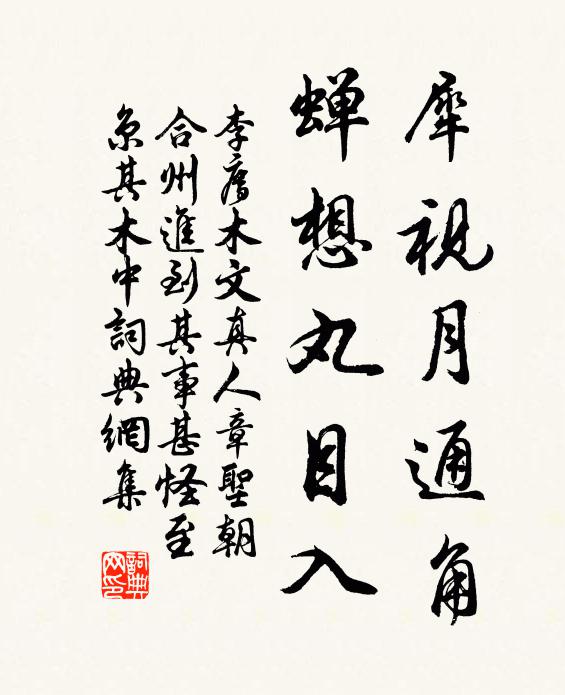 犀視月通角
蟬想丸目入
李廌木文真人章聖朝
合州進到其事甚怪至
京其木中詞典網集
詞典网印